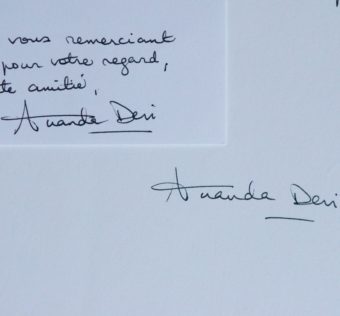 vous remerciant
pour votre regard,
te amitié,
Ananda Devi
Ananda Devi